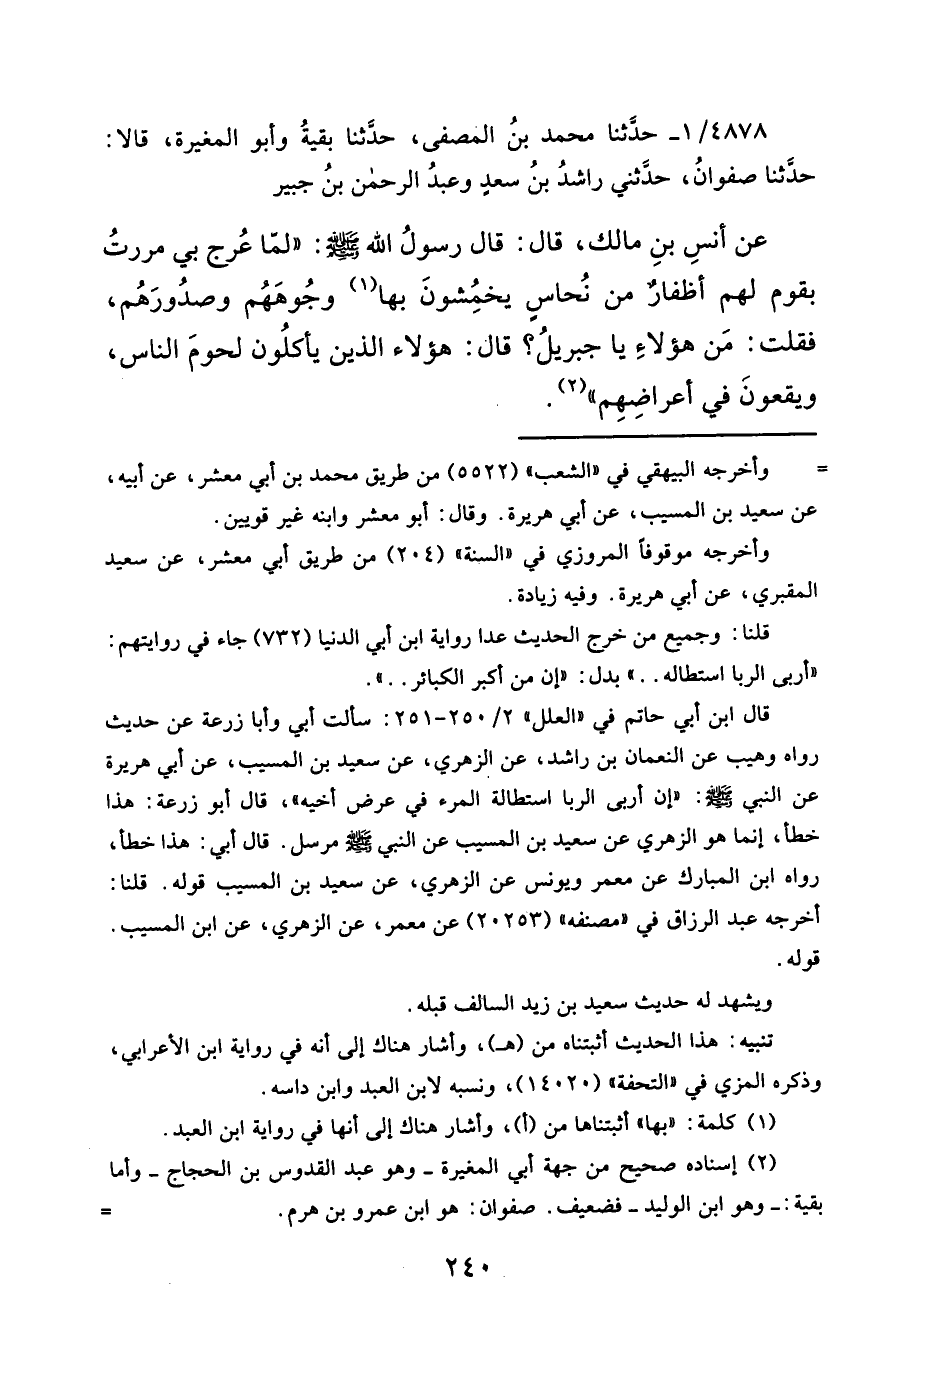 ٤٨٧٨/ ١ـ حدَّثنا محمد بنُ المصفى، حدَّثنا بقيةُ وأبو المغيرة، قالا:
حدَّثنا صفوانُ، حدَّثني راشدُ بنُ سعدٍ وعبدُ الرحمٰن بنُ جبير
عن أنسِ بنِ مالك، قال: قال رسولُ الله ﷺ: «لمّا عُرج بي مررتُ
بقوم لهم أظفارٌ من نُحاسٍ يخمِشونَ بها(١) وجُوهَهُم وصدُورَهُم،
فقلت: مَن هؤلاءِ يا جبريلُ؟ قال: هؤلاء الذين يأكلُون لحومَ الناس،
ويقعونَ في أعراضِهِم»(٢).
= وأخرجه البيهقي في «الشعب» (٥٥٢٢) من طريق محمد بن أبي معشر، عن أبيه،
عن سعيد بن المسيب، عن أبي هريرة. وقال: أبو معشر وابنه غير قويين.
وأخرجه موقوفاً المروزي في «السنة» (٢٠٤) من طريق أبي معشر، عن سعيد
المقبري، عن أبي هريرة. وفيه زيادة.
قلنا: وجميع من خرج الحديث عدا رواية ابن أبي الدنيا (٧٣٢) جاء في روايتهم:
«أربى الربا استطاله..» بدل: «إن من أكبر الكبائر..».
قال ابن أبي حاتم في «العلل» ٢/ ٢٥٠-٢٥١: سألت أبي وأبا زرعة عن حديث
رواه وهيب عن النعمان بن راشد، عن الزهري، عن سعيد بن المسيب، عن أبي هريرة
عن النبي ﷺ: «إن أربى الربا استطالة المرء في عرض أخيه»، قال أبو زرعة: هذا
خطأ، إنما هو الزهري عن سعيد بن المسيب عن النبي ﷺ مرسل. قال أبي: هذا خطأ،
رواه ابن المبارك عن معمر ويونس عن الزهري، عن سعيد بن المسيب قوله. قلنا:
أخرجه عبد الرزاق في «مصنفه» (٢٠٢٥٣) عن معمر، عن الزهري، عن ابن المسيب.
قوله.
ويشهد له حديث سعيد بن زيد السالف قبله.
تنبيه: هذا الحديث أثبتناه من (هـ)، وأشار هناك إلى أنه في رواية ابن الأعرابي،
وذكره المزي في «التحفة» (١٤٠٢٠)، ونسبه لابن العبد وابن داسه.
(١) كلمة: «بها» أثبتناها من (أ)، وأشار هناك إلى أنها في رواية ابن العبد.
(٢) إسناده صحيح من جهة أبي المغيرة ـ وهو عبد القدوس بن الحجاج ـ وأما
بقية: ـ وهو ابن الوليد ـ فضعيف. صفوان: هو ابن عمرو بن هرم. =
٢٤٠